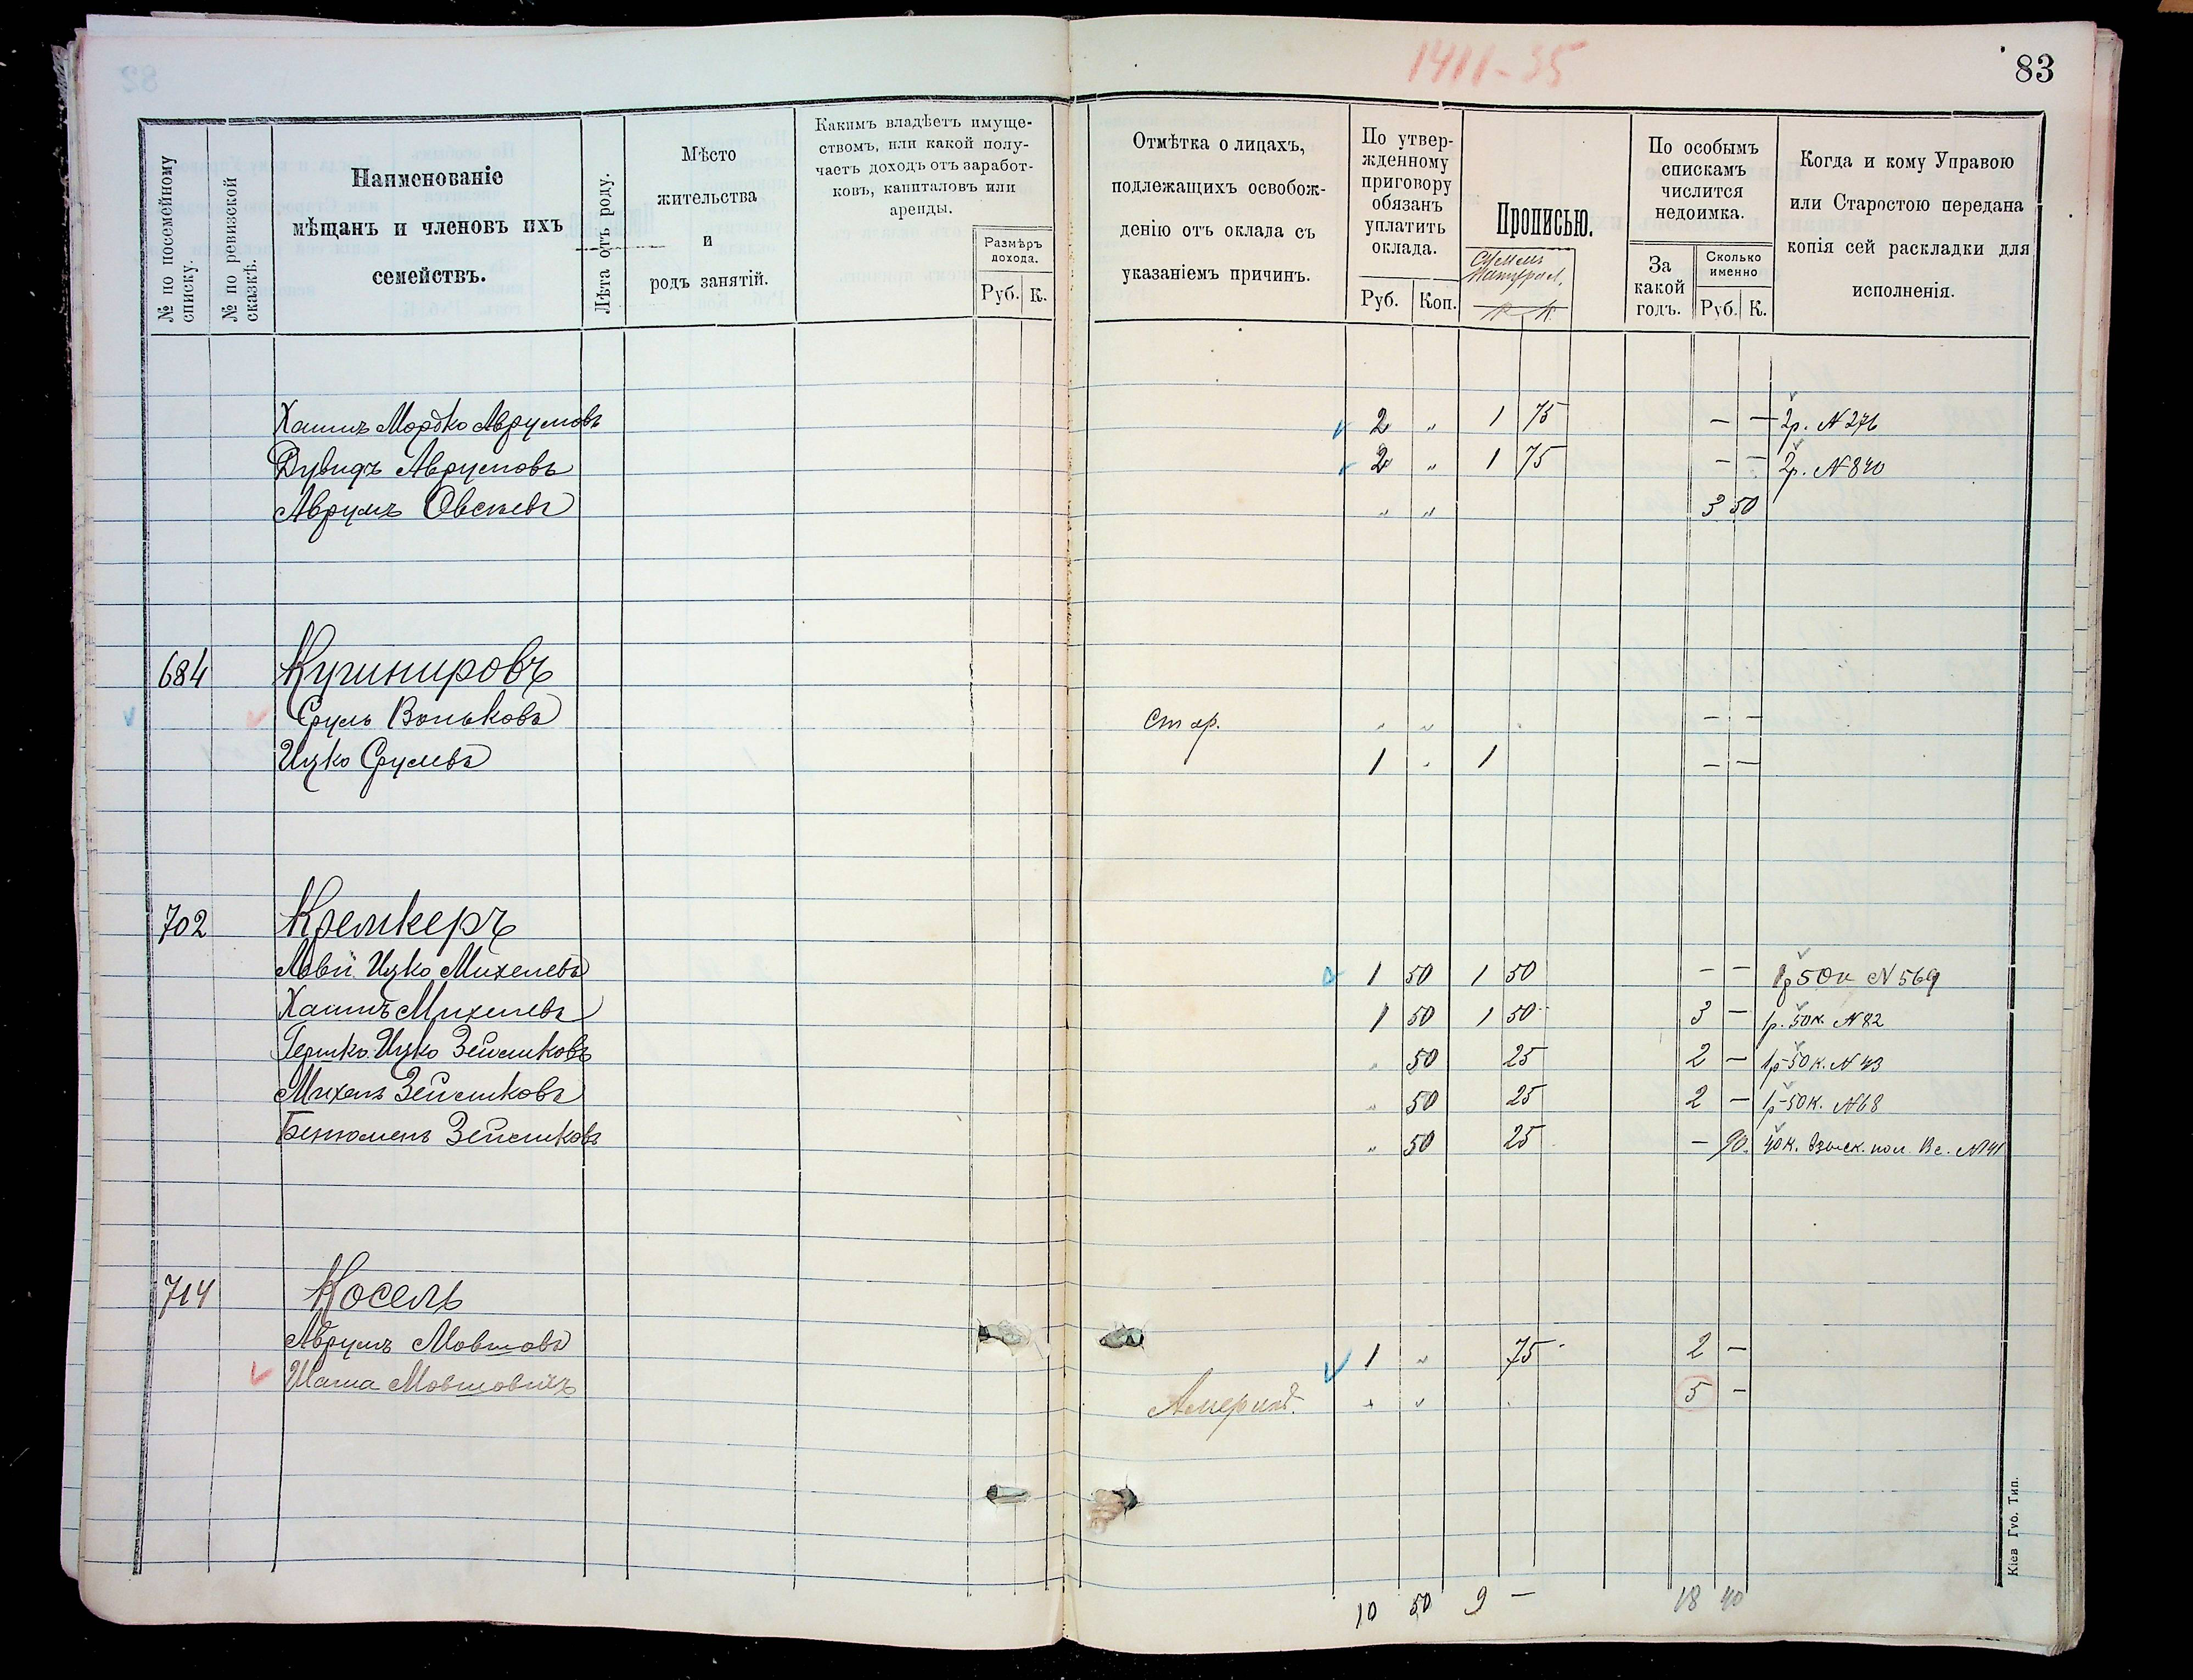 1411-35
83
№ по посемейному списку.
№ по ревизской сказкѣ.
Наименованіе
мѣщанъ и членовъ ихъ
семействъ.
Лѣта отъ роду.
Мѣсто
жительства
и
родъ занятій.
Какимъ владѣетъ имуще-
ствомъ, или какой полу-
чаетъ доходъ отъ заработ-
ковъ, капиталовъ или
аренды.
Размѣръ
дохода.
Руб. К.
Отмѣтка о лицахъ,
подлежащихъ освобож-
денію отъ оклада съ
указаніемъ причинъ.
По утвер-
жденному
приговору
обязанъ
уплатить
оклада.
Руб. Коп.
Прописью.
По особымъ
спискамъ
числится
недоимка.
За
какой
годъ.
Сколько
именно
Руб. К.
Когда и кому Управою
или Старостою передана
копія сей раскладки для
исполненія.
Хаимъ Мордко Аврумовъ 2 „ 1 75 — — 2р. N 276
Дувидъ Аврумовъ 2 „ 1 75 — — 2р. N 840
Аврумъ Овсиевъ „ „ 3 50
684 Кушнировъ
Сруль Воньковъ Стар. „ „ — —
Ицко Срулевъ 1 „ 1 — —
702 Кремкеръ
Лейб Ицко Михелевъ 1 50 1 50 — — 1р 50к N 569
Хаимъ Михелевъ 1 50 1 50 3 — 1р. 50к. N 82
Гершко Ицко Зейликовъ „ 50 25 2 — 1р 50к. N 43
Михель Зейликовъ „ 50 25 2 — 1р 50к. N 68
Бенюменъ Зейликовъ „ 50 25 — 90. 40к. Взыск. пол. N 141
714 Косель
Аврумъ Мовшовъ 1 „ 75 2 —
Шама Мовшовичъ „ „ 5 —
10 50 9 — 18 40
Кіев Губ. Тип.